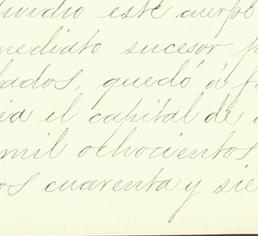 ividió este cuerpo
mediato sucesor p
bados, quedó á f
ia el capital de
mil ochocientos
os cuarenta y sie